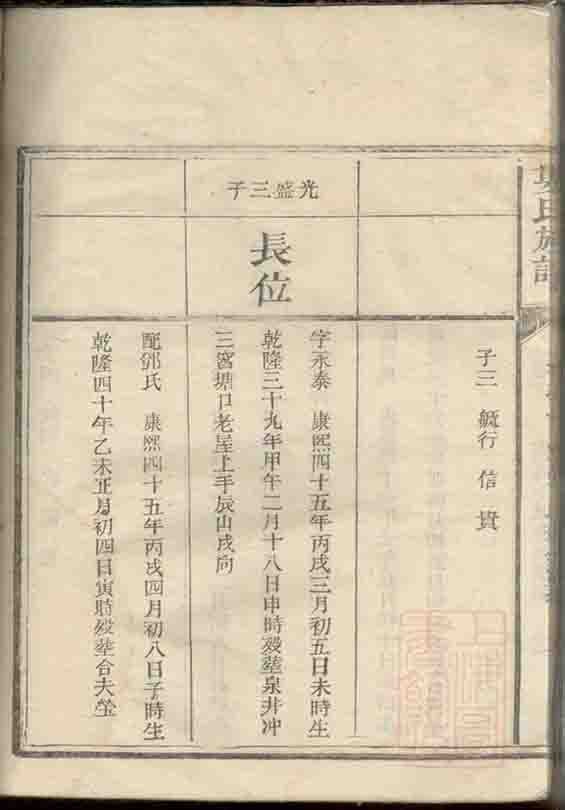 氏族譜
子三 毓行 信 貴
光盛三子
長位
字永泰 康熙四十五年丙戌三月初五日未時生
乾隆三十九年甲午二月十八日申時歿塟泉井冲
三窩塘口老屋上手辰山戌向
配鄧氏 康熙四十五年丙戌四月初八日子時生
乾隆四十年乙未正月初四日寅時歿塟合夫塋